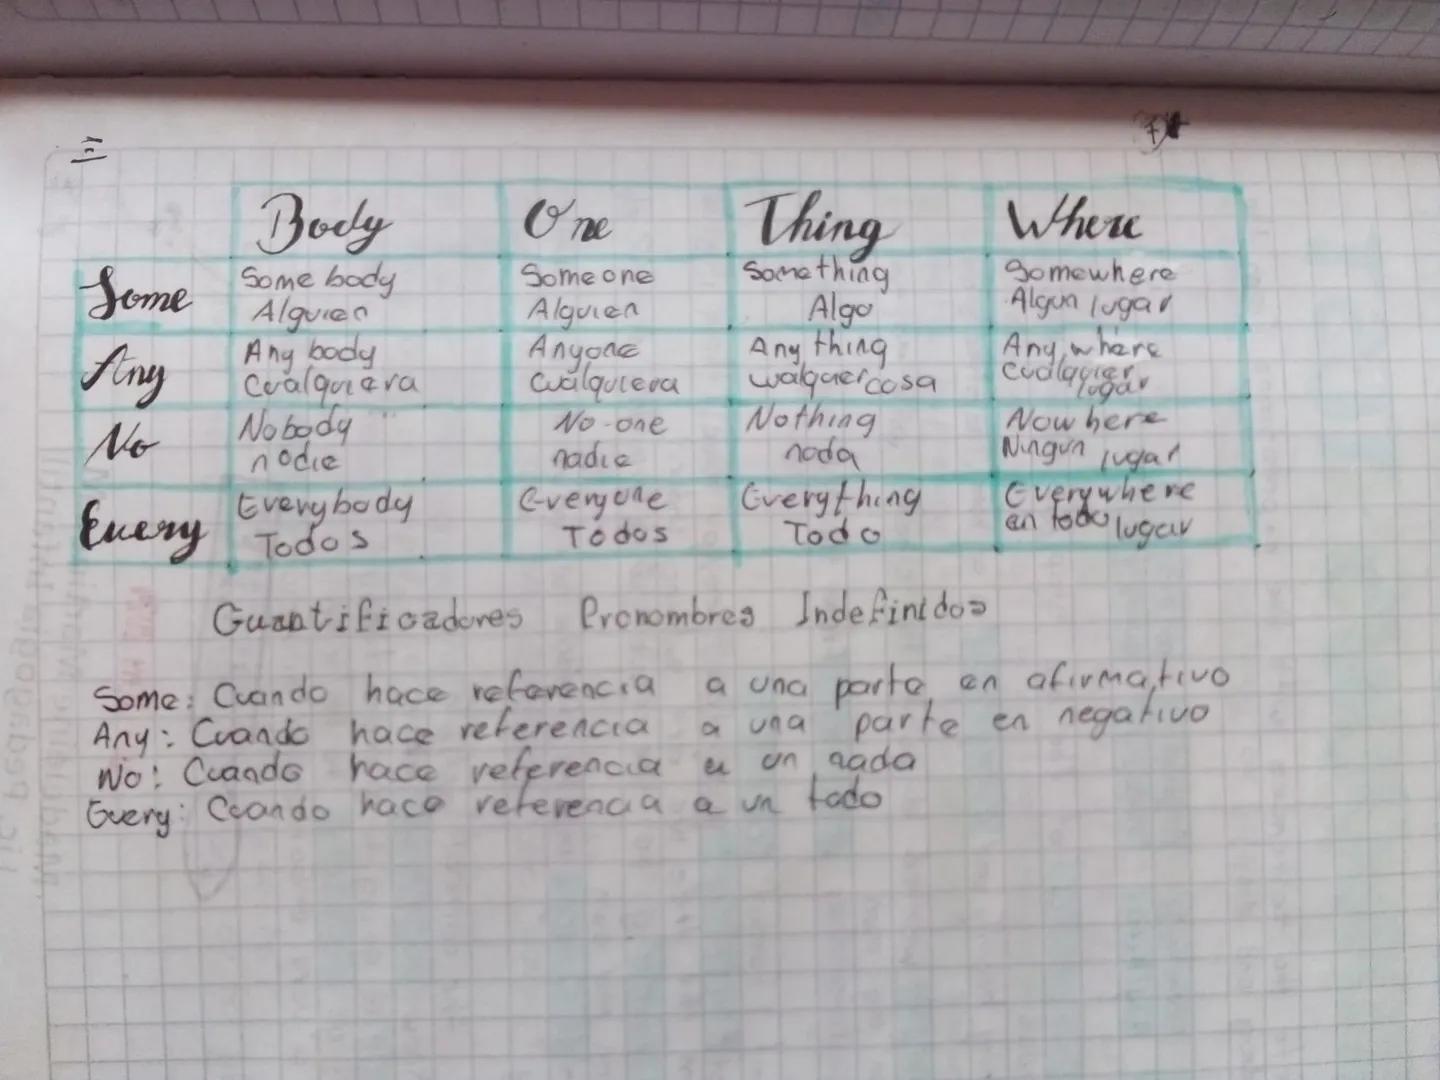 Body One Thing Where
Some
Somebody Someone Something Somewhere
Alguien Alguien Algo Algun lugar
Any
Any body Anyone Any thing Any where
Cualquiera Cualquiera cualquier cosa Cualquier lugar
No
Nobody No-one Nothing Nowhere
nadie nadie nada Ningun lugar
Every
Everybody Everyone Everything Everywhere
Todos Todos Todo en todo lugar
Cuantificadores Pronombres Indefinidos
Some: Cuando hace referencia a una parte en afirmativo
Any: Cuando hace referencia a una parte en negativo
No: Cuando hace referencia a un nada
Every: Cuando hace referencia a un todo